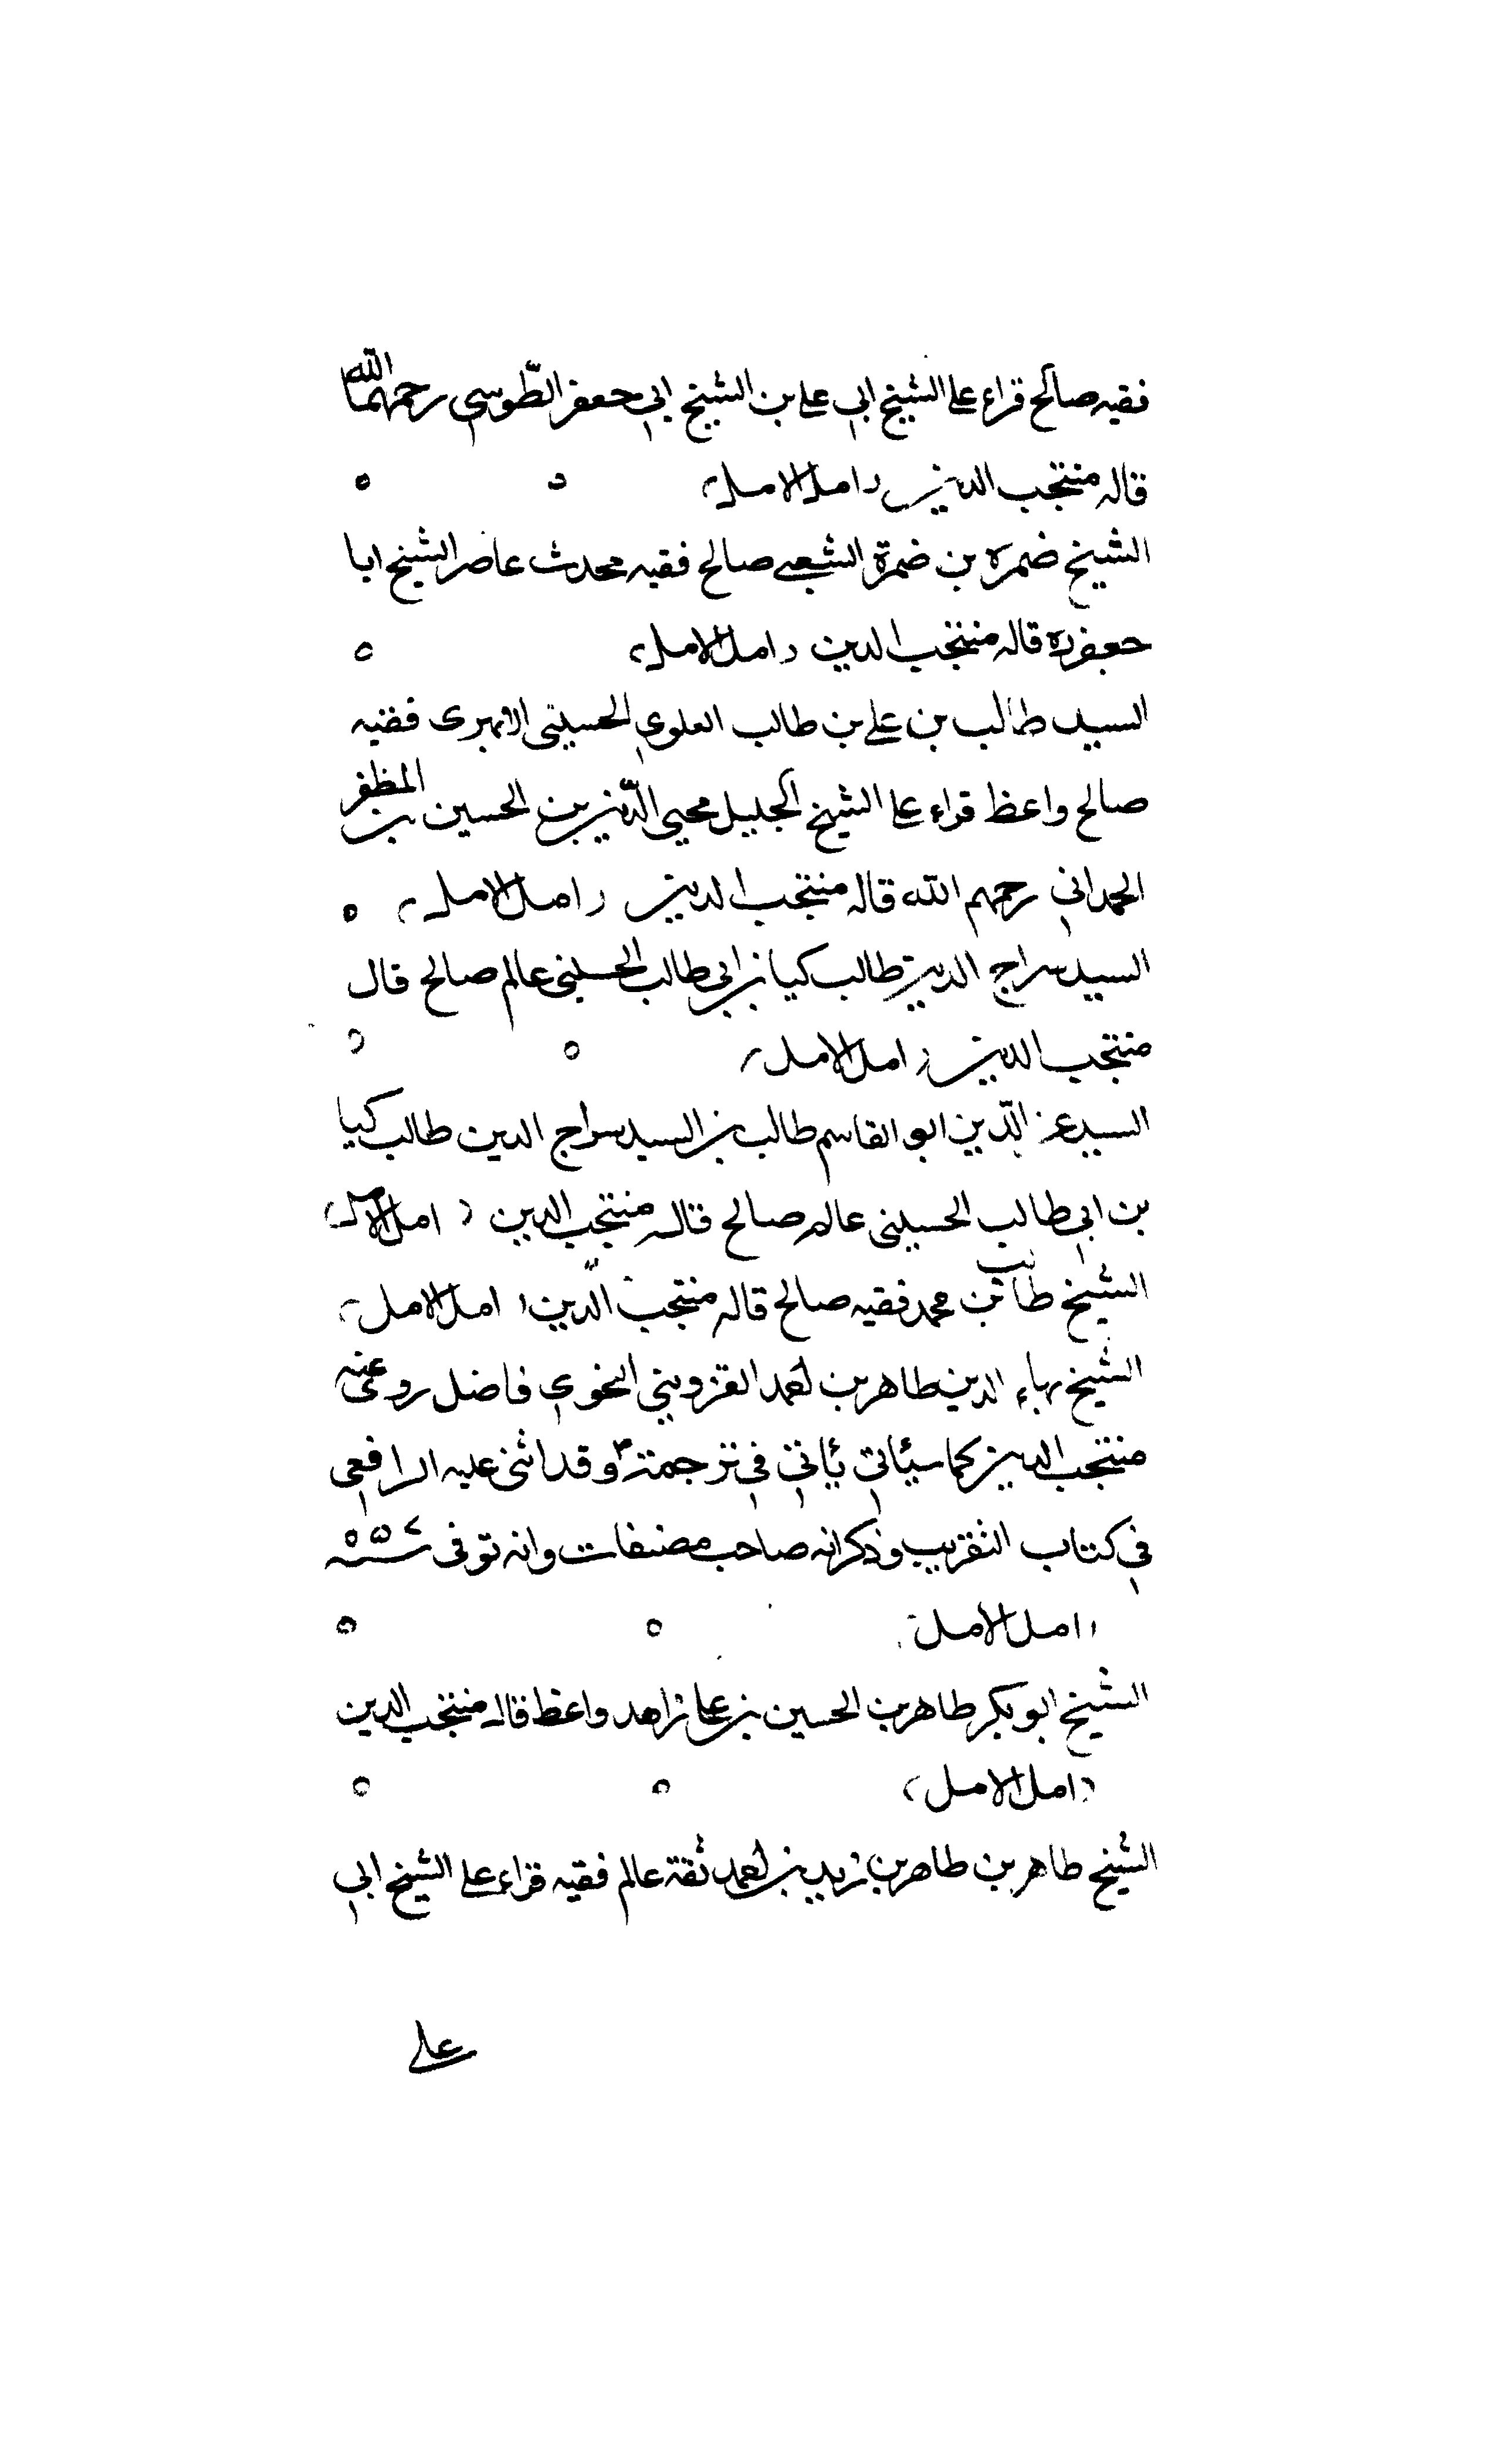 فقيه صالح قراء على الشيخ ابي على بن الشيخ ابي جعفر الطّوسي رحمهما الله
قاله منتجب الدين (امل الامل)
الشيخ ضمره بن ضمرة الشعبي صالح فقيه محدث عاصر الشيخ ابا
جعفر ره قاله منتجب الدين (امل الامل)
السيد طالب بن علي بن طالب العلوي الحسيني الابهرى فقيه
صالح واعظ قراء على الشيخ الجليل محيي الدّين بن الحسين بن المظفر
الحمداني رحمهم الله قاله منتجب الدين (امل الامل)
السيد سراج الدين طالب كيا بن ابي طالب الحسيني عالم صالح قال
منتجب الدين (امل الامل)
السيد عز الدّين ابو القاسم طالب بن السيد سراج الدين طالب كيا
بن ابي طالب الحسيني عالم صالح قاله منتجب الدين (امل الامل)
الشيخ طالب بن محمد فقيه صالح قاله منتجب الدّين (امل الامل)
الشيخ بهاء الدين طاهر بن احمد القزويني النحوي فاضل روى عنه
منتجب الدين كما سيأتي يأتي في ترجمته وقد اثنى عليه الرافعي
في كتاب التقريب وذكر انه صاحب مصنفات وانه توفى سنة
(امل الامل)
الشيخ ابو بكر طاهر بن الحسين بن على زاهد واعظ قاله منتجب الدين
(امل الامل)
الشيخ طاهر بن طاهر بن زيد بن احمد ثقة عالم فقيه قراء على الشيخ ابي
على